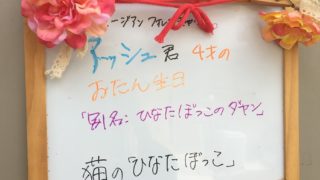 ージアン
アッシュ君 4才の
おたん生日
「別名:ひなたぼっこのダヤン」
猫の「ひなたぼっこ」